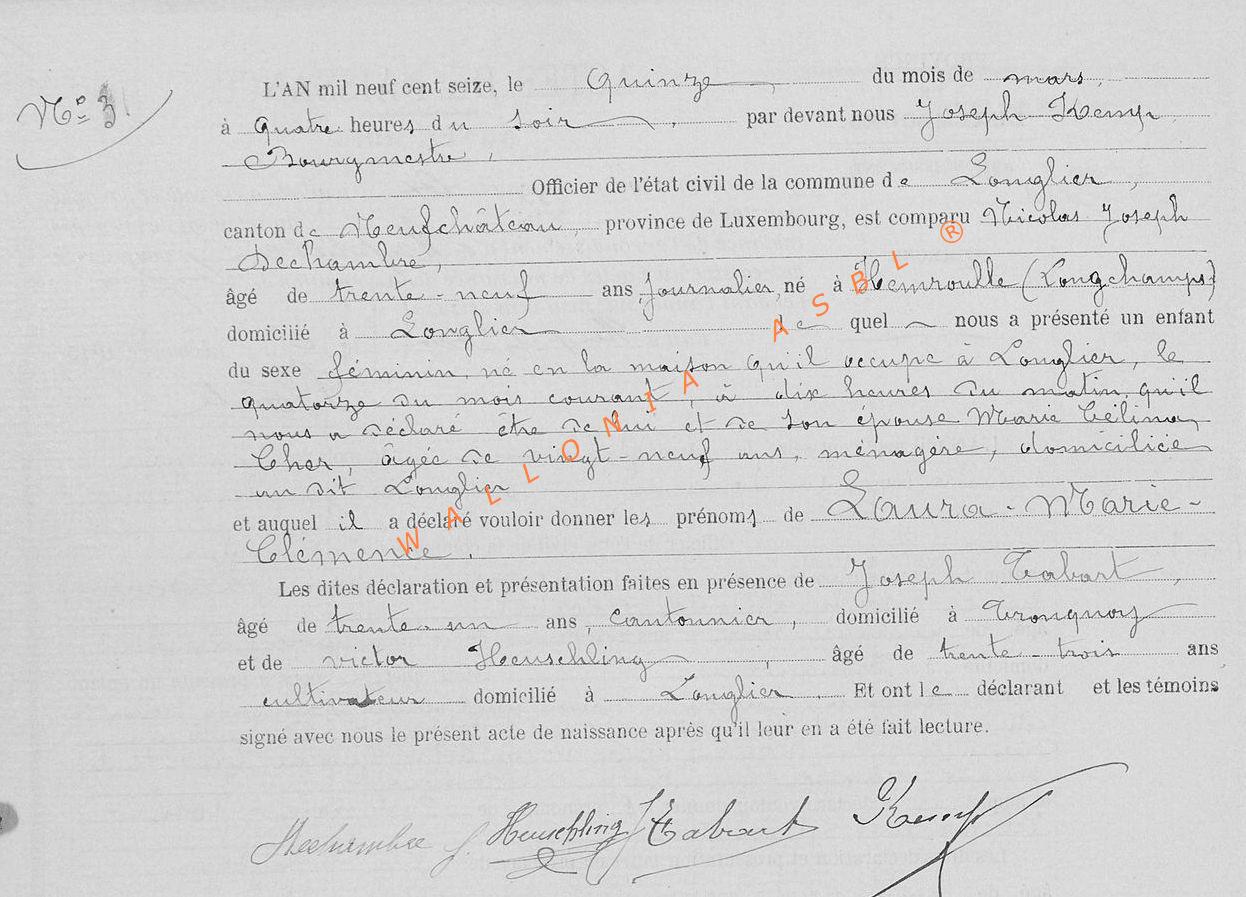 N° 3
L'AN mil neuf cent seize, le Quinze, du mois de mars,
à quatre heures du soir, par devant nous Joseph Kemp,
Bourgmestre,
Officier de l'état civil de la commune de Longlier,
canton de Neufchâteau, province de Luxembourg, est comparu Nicolas Joseph
Dechambre,
âgé de trente-neuf ans, Journalier, né à Hemroulle (Longchamps)
domicilié à Longlier lequel nous a présenté un enfant
du sexe féminin, né en la maison qu'il occupe à Longlier, le
quatorze du mois courant, à dix heures du matin, qu'il
nous a déclaré être de lui et de son épouse Marie Célina
Cher, âgée de vingt-neuf ans, ménagère, domiciliée
au dit Longlier
et auquel il a déclaré vouloir donner les prénoms de Laura-Marie-
Clémence.
Les dites déclaration et présentation faites en présence de Joseph Tabart,
âgé de trente-un ans, cantonnier, domicilié à Tronquoy
et de victor Heuschling, âgé de trente-trois ans
cultivateur domicilié à Longlier. Et ont le déclarant et les témoins
signé avec nous le présent acte de naissance après qu'il leur en a été fait lecture.
Dechambre J Heuschling J Tabart Kemp
WALLONIA ASBL ®